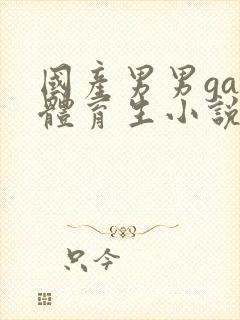 國產男男ga
體育生小說
只今